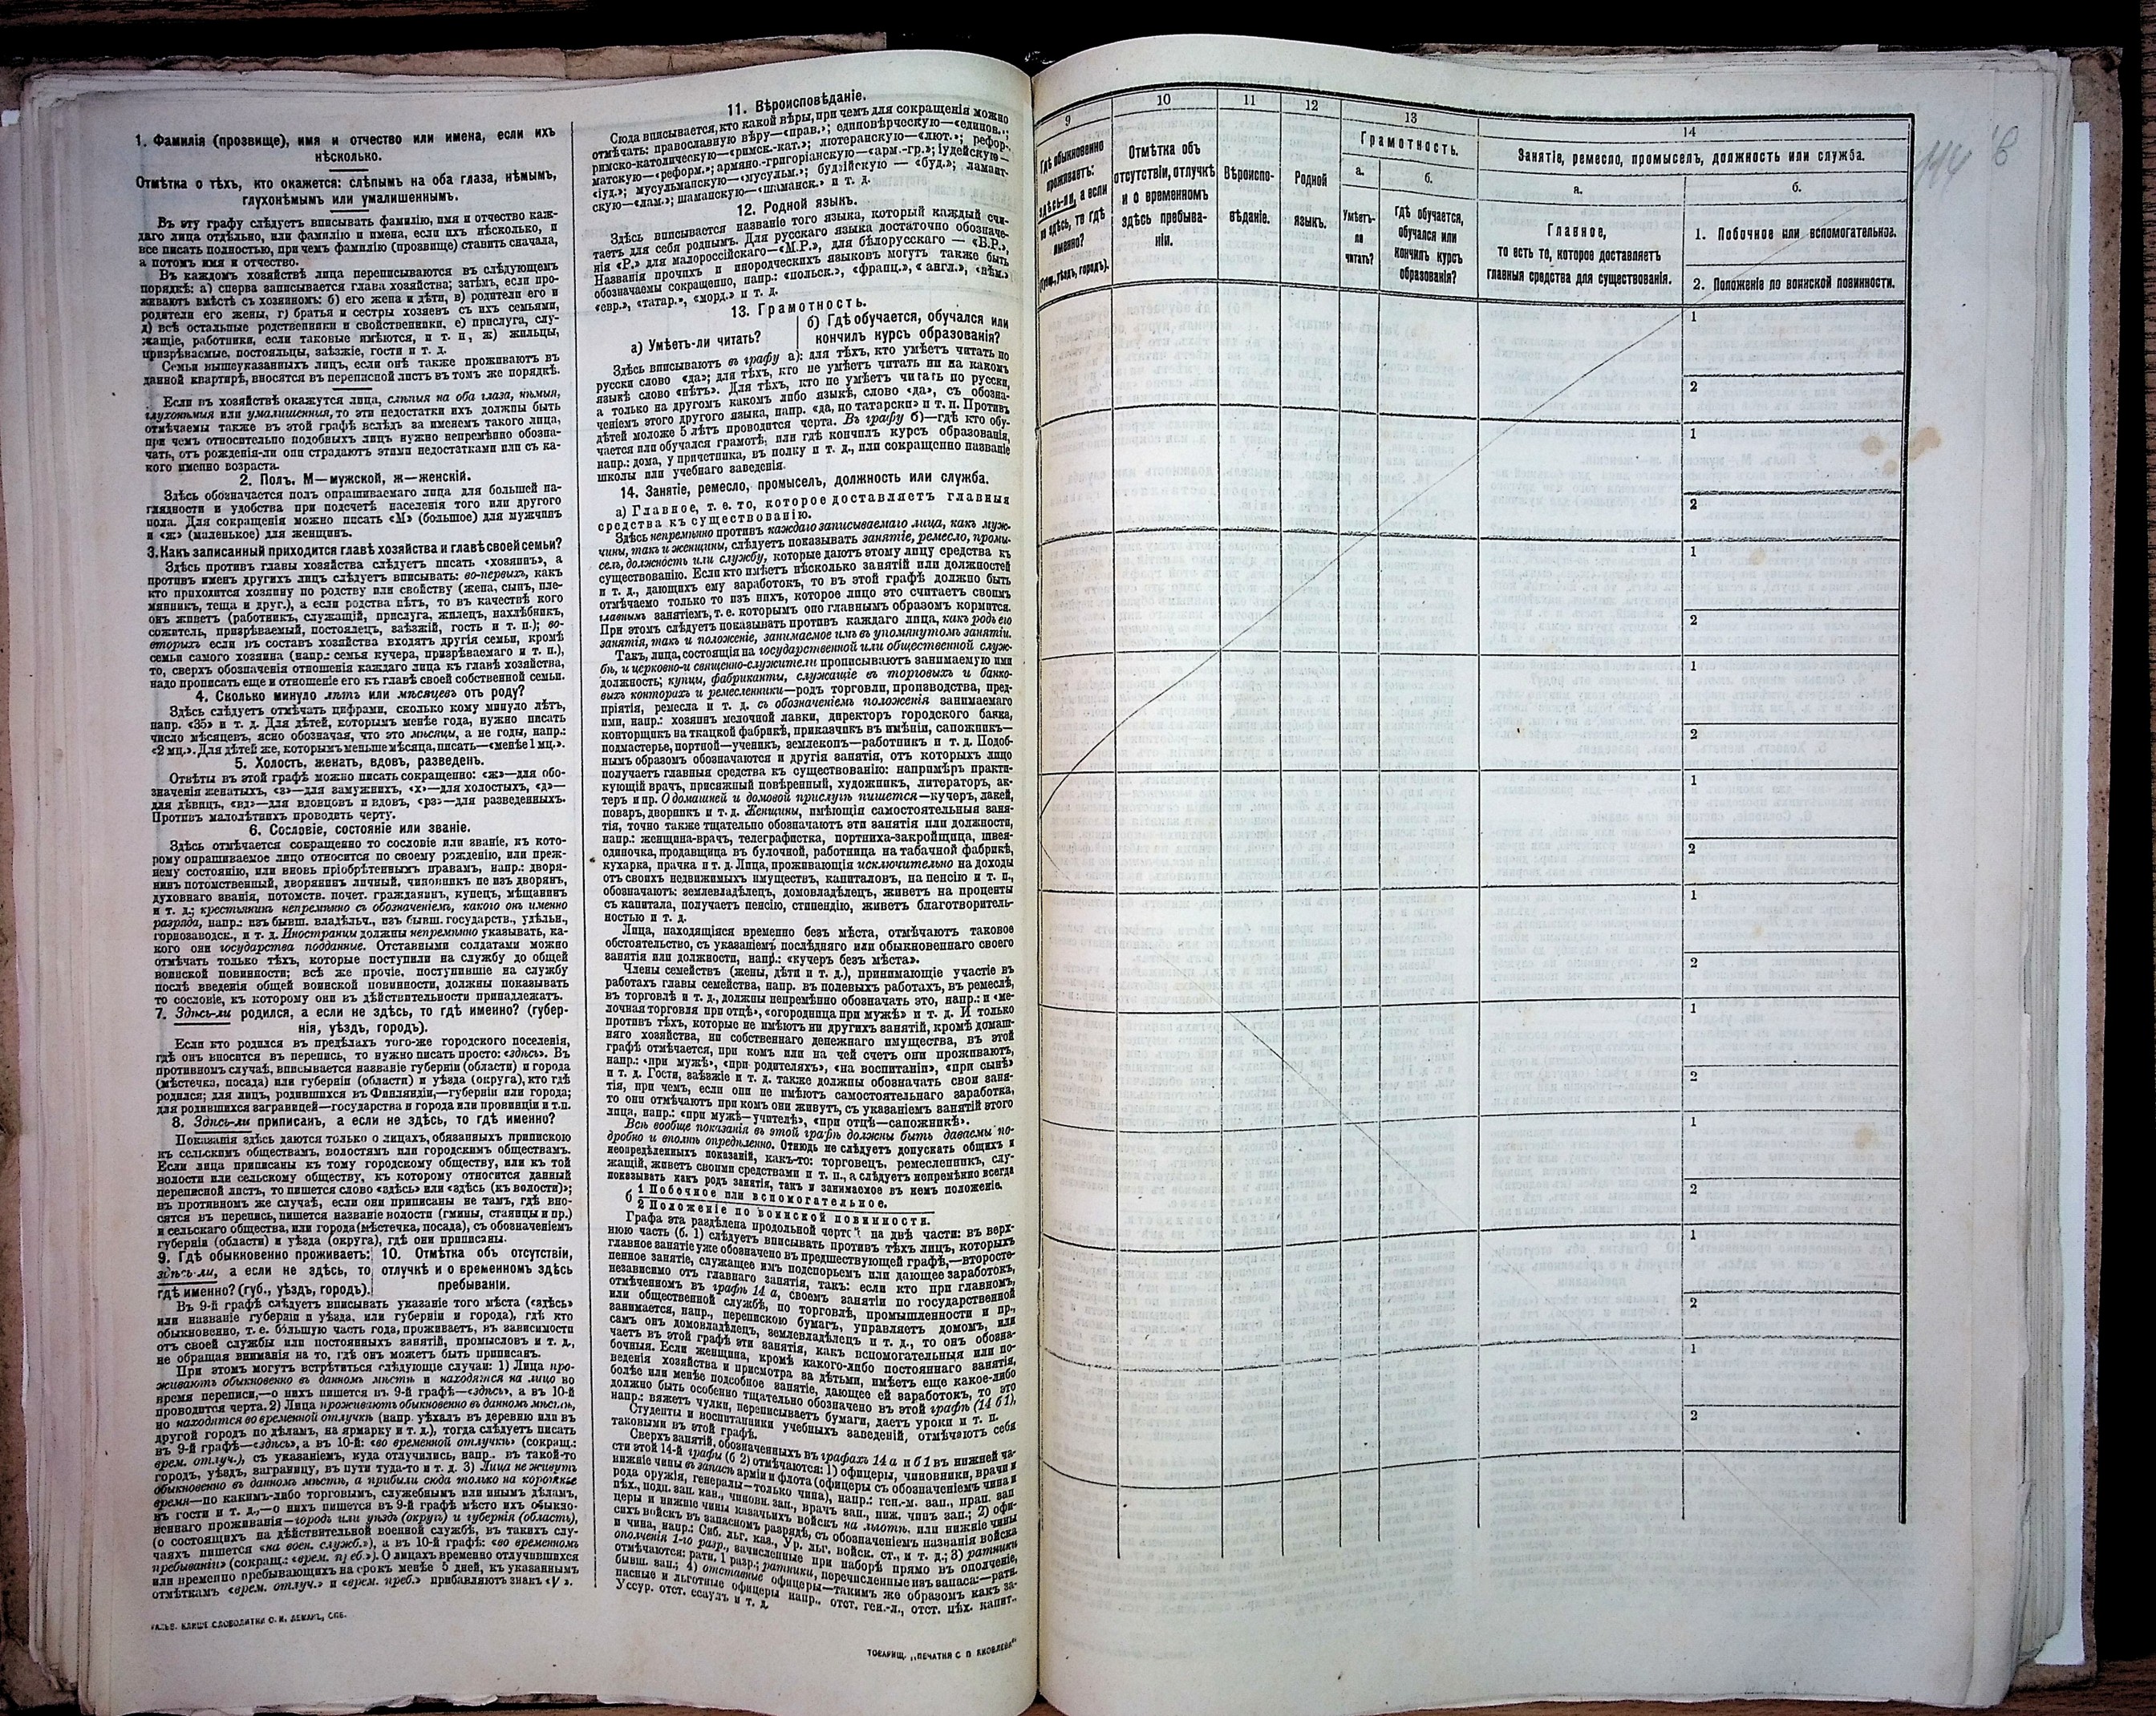 1. Фамилія (прозвище), имя и отчество или имена, если ихъ
нѣсколько.
Отмѣтка о тѣхъ, кто окажется: слѣпымъ на оба глаза, нѣмымъ,
глухонѣмымъ или умалишеннымъ.
Въ эту графу слѣдуетъ вписывать фамилію, имя и отчество каж-
даго лица отдѣльно, или фамилію и имена, если ихъ нѣсколько, и
все писать полностью, при чемъ фамилію (прозвище) ставить сначала,
а потомъ имя и отчество.
Въ каждомъ хозяйствѣ лица переписываются въ слѣдующемъ
порядкѣ: а) сперва записывается глава хозяйства; затѣмъ, если про-
живаютъ вмѣстѣ съ хозяиномъ: б) его жена и дѣти, в) родители его и
родители его жены, г) братья и сестры хозяевъ съ ихъ семьями,
д) всѣ остальные родственники и свойственники, е) прислуга, слу-
жащіе, работники, если таковые имѣются, и т. п., ж) жильцы,
призрѣваемые, постояльцы, заѣзжіе, гости и т. д.
Семьи вышеуказанныхъ лицъ, если онѣ также проживаютъ въ
данной квартирѣ, вносятся въ переписной листъ въ томъ же порядкѣ.
Если въ хозяйствѣ окажутся лица, слѣпыя на оба глаза, нѣмыя,
глухонѣмыя или умалишенныя, то эти недостатки ихъ должны быть
отмѣчаемы также въ этой графѣ вслѣдъ за именемъ такого лица,
при чемъ относительно подобныхъ лицъ нужно непремѣнно обозна-
чать, отъ рожденія-ли они страдаютъ этими недостатками или съ ка-
кого именно возраста.
2. Полъ. М—мужской, ж—женскій.
Здѣсь обозначается полъ опрашиваемаго лица для большей на-
глядности и удобства при подсчетѣ населенія того или другого
пола. Для сокращенія можно писать «М» (большое) для мужчинъ
и «ж» (маленькое) для женщинъ.
3. Какъ записанный приходится главѣ хозяйства и главѣ своей семьи?
Здѣсь противъ главы хозяйства слѣдуетъ писать «хозяинъ», а
противъ именъ другихъ лицъ слѣдуетъ вписывать: во-первыхъ, какъ
кто приходится хозяину по родству или свойству (жена, сынъ, пле-
мянникъ, теща и друг.), а если родства нѣтъ, то въ качествѣ кого
онъ живетъ (работникъ, служащій, прислуга, жилецъ, нахлѣбникъ,
сожитель, призрѣваемый, постоялецъ, заѣзжій, гость и т. п.); во-
вторыхъ если въ составъ хозяйства входятъ другія семьи, кромѣ
семьи самого хозяина (напр.: семья кучера, призрѣваемаго и т. п.),
то, сверхъ обозначенія отношенія каждаго лица къ главѣ хозяйства,
надо прописать еще и отношеніе его къ главѣ своей собственной семьи.
4. Сколько минуло лѣтъ или мѣсяцевъ отъ роду?
Здѣсь слѣдуетъ отмѣчать цифрами, сколько кому минуло лѣтъ,
напр. «35» и т. д. Для дѣтей, которымъ менѣе года, нужно писать
число мѣсяцевъ, ясно обозначая, что это мѣсяцы, а не годы, напр.:
«2 мц.». Для дѣтей же, которымъ меньше мѣсяца, писать—«менѣе 1 мц.».
5. Холостъ, женатъ, вдовъ, разведенъ.
Отвѣты въ этой графѣ можно писать сокращенно: «ж»—для обо-
значенія женатыхъ, «з»—для замужнихъ, «х»—для холостыхъ, «д»—
для дѣвицъ, «вд»—для вдовцовъ и вдовъ, «рз»—для разведенныхъ.
Противъ малолѣтнихъ проводить черту.
6. Сословіе, состояніе или званіе.
Здѣсь отмѣчается сокращенно то сословіе или званіе, къ кото-
рому опрашиваемое лицо относится по своему рожденію, или преж-
нему состоянію, или вновь пріобрѣтеннымъ правамъ, напр.: дворя-
нинъ потомственный, дворянинъ личный, чиновникъ не изъ дворянъ,
духовнаго званія, потомств. почет. гражданинъ, купецъ, мѣщанинъ
и т. д.; крестьянинъ непремѣнно съ обозначеніемъ, какого онъ именно
разряда, напр.: изъ бывш. владѣльч., изъ бывш. государств., удѣльн.,
горнозаводск., и т. д. Иностранцы должны непремѣнно указывать, ка-
кого они государства подданные. Отставными солдатами можно
отмѣчать только тѣхъ, которые поступили на службу до общей
воинской повинности; всѣ же прочіе, поступившіе на службу
послѣ введенія общей воинской повинности, должны показывать
то сословіе, къ которому они въ дѣйствительности принадлежатъ.
7. Здѣсь-ли родился, а если не здѣсь, то гдѣ именно? (губер-
нія, уѣздъ, городъ).
Если кто родился въ предѣлахъ того-же городского поселенія,
гдѣ онъ вносится въ перепись, то нужно писать просто: «здѣсь». Въ
противномъ случаѣ, вписывается названіе губерніи (области) и города
(мѣстечка, посада) или губерніи (области) и уѣзда (округа), кто гдѣ
родился; для лицъ, родившихся въ Финляндіи,—губерніи или города;
для родившихся заграницей—государства и города или провинціи и т.п.
8. Здѣсь-ли приписанъ, а если не здѣсь, то гдѣ именно?
Показанія здѣсь даются только о лицахъ, обязанныхъ припискою
къ сельскимъ обществамъ, волостямъ или городскимъ обществамъ.
Если лица приписаны къ тому городскому обществу, или къ той
волости или сельскому обществу, къ которому относится данный
переписной листъ, то пишется слово «здѣсь» или «здѣсь (къ волости)»;
въ противномъ же случаѣ, если они приписаны не тамъ, гдѣ вно-
сятся въ перепись, пишется названіе волости (гмины, станицы и пр.)
и сельскаго общества, или города (мѣстечка, посада), съ обозначеніемъ
губерніи (области) и уѣзда (округа), гдѣ они приписаны.
9. Гдѣ обыкновенно проживаетъ:
здѣсь-ли, а если не здѣсь, то
гдѣ именно? (губ., уѣздъ, городъ).
10. Отмѣтка объ отсутствіи,
отлучкѣ и о временномъ здѣсь
пребываніи.
Въ 9-й графѣ слѣдуетъ вписывать указаніе того мѣста («здѣсь»
или названіе губерніи и уѣзда, или губерніи и города), гдѣ кто
обыкновенно, т. е. бо́льшую часть года, проживаетъ, въ зависимости
отъ своей службы или постоянныхъ занятій, промысловъ и т. д.,
не обращая вниманія на то, гдѣ онъ можетъ быть приписанъ.
При этомъ могутъ встрѣтиться слѣдующіе случаи: 1) Лица про-
живаютъ обыкновенно въ данномъ мѣстѣ и находятся на лицо во
время переписи,—о нихъ пишется въ 9-й графѣ—«здѣсь», а въ 10-й
проводится черта. 2) Лица проживаютъ обыкновенно въ данномъ мѣстѣ,
но находятся во временной отлучкѣ (напр. уѣхалъ въ деревню или въ
другой городъ по дѣламъ, на ярмарку и т. д.), тогда слѣдуетъ писать
въ 9-й графѣ—«здѣсь», а въ 10-й: «во временной отлучкѣ» (сокращ.:
врем. отлуч.), съ указаніемъ, куда отлучились, напр.. въ такой-то
городъ, уѣздъ, заграницу, въ пути туда-то и т. д. 3) Лица не живутъ
обыкновенно въ данномъ мѣстѣ, а прибыли сюда только на короткое
время—по какимъ-либо торговымъ, служебнымъ или инымъ дѣламъ,
въ гости и т. д.,—о нихъ пишется въ 9-й графѣ мѣсто ихъ обыкно-
веннаго проживанія—городъ или уѣздъ (округъ) и губернія (область),
(о состоящихъ на дѣйствительной военной службѣ, въ такихъ слу-
чаяхъ пишется «на воен. служб.»), а въ 10-й графѣ: «во временномъ
пребываніи» (сокращ.: «врем. преб.»). О лицахъ временно отлучившихся
или временно пребывающихъ на срокъ менѣе 5 дней, къ указаннымъ
отмѣткамъ «врем. отлуч.» и «врем. преб.» прибавляютъ знакъ «V».
КЛИШЕ СЛОВОЛИТНИ О. И. ЛЕМАНЪ, СПБ.
11. Вѣроисповѣданіе.
Сюда вписывается, кто какой вѣры, при чемъ для сокращенія можно
отмѣчать: православную вѣру—«прав.»; единовѣрческую—«единов.»;
римско-католическую—«римск.-кат.»; лютеранскую—«лют.»; рефор-
матскую—«реформ.»; армяно-григоріанскую—«арм.-гр.»; іудейскую—
«іуд.»; мусульманскую—«мусульм.»; буддійскую — «буд.»; ламаит-
скую—«лам.»; шаманскую—«шаманск.» и т. д.
12. Родной языкъ.
Здѣсь вписывается названіе того языка, который каждый счи-
таетъ для себя роднымъ. Для русскаго языка достаточно обозначе-
нія «Р.» для малороссійскаго—«М.Р.», для бѣлорусскаго — «Б.Р.»,
Названія прочихъ и инородческихъ языковъ могутъ также быть
обозначаемы сокращенно, напр.: «польск.», «франц.», « англ.», «нѣм.»
«евр.», «татар.», «морд.» и т. д.
13. Грамотность.
а) Умѣетъ-ли читать?
б) Гдѣ обучается, обучался или
кончилъ курсъ образованія?
Здѣсь вписываютъ въ графу а): для тѣхъ, кто умѣетъ читать по
русски слово «да»; для тѣхъ, кто не умѣетъ читать ни на какомъ
языкѣ слово «нѣтъ». Для тѣхъ, кто не умѣетъ читать по русски,
а только на другомъ какомъ либо языкѣ, слово «да», съ обозна-
ченіемъ этого другого языка, напр. «да, по татарски» и т. п. Противъ
дѣтей моложе 5 лѣтъ проводится черта. Въ графу б)—гдѣ кто обу-
чается или обучался грамотѣ, или гдѣ кончилъ курсъ образованія,
напр.: дома, у причетника, въ полку и т. д., или сокращенно названіе
школы или учебнаго заведенія.
14. Занятіе, ремесло, промыселъ, должность или служба.
а) Главное, т. е. то, которое доставляетъ главныя
средства къ существованію.
Здѣсь непремѣнно противъ каждаго записываемаго лица, какъ муж-
чины, такъ и женщины, слѣдуетъ показывать занятіе, ремесло, промы-
селъ, должность или службу, которые даютъ этому лицу средства къ
существованію. Если кто имѣетъ нѣсколько занятій или должностей
и т. д., дающихъ ему заработокъ, то въ этой графѣ должно быть
отмѣчаемо только то изъ нихъ, которое лицо это считаетъ своимъ
главнымъ занятіемъ, т. е. которымъ оно главнымъ образомъ кормится.
При этомъ слѣдуетъ показывать противъ каждаго лица, какъ родъ его
занятія, такъ и положеніе, занимаемое имъ въ упомянутомъ занятіи.
Такъ, лица, состоящія на государственной или общественной служ-
бѣ, и церковно-и священно-служители прописываютъ занимаемую ими
должность; купцы, фабриканты, служащіе въ торговыхъ и банко-
выхъ конторахъ и ремесленники—родъ торговли, производства, пред-
пріятія, ремесла и т. д. съ обозначеніемъ положенія занимаемаго
ими, напр.: хозяинъ мелочной лавки, директоръ городского банка,
конторщикъ на ткацкой фабрикѣ, приказчикъ въ имѣніи, сапожникъ—
подмастерье, портной—ученикъ, землекопъ—работникъ и т. д. Подоб-
нымъ образомъ обозначаются и другія занятія, отъ которыхъ лицо
получаетъ главныя средства къ существованію: напримѣръ практи-
кующій врачъ, присяжный повѣренный, художникъ, литераторъ, ак-
теръ и пр. О домашней и домовой прислугѣ пишется—кучеръ, лакей,
поваръ, дворникъ и т. д. Женщины, имѣющія самостоятельныя заня-
тія, точно также тщательно обозначаютъ эти занятія или должности,
напр.: женщина-врачъ, телеграфистка, портниха-закройщица, швея-
одиночка, продавщица въ булочной, работница на табачной фабрикѣ,
кухарка, прачка и т. д. Лица, проживающія исключительно на доходы
отъ своихъ недвижимыхъ имуществъ, капиталовъ, на пенсію и т. п.,
обозначаютъ: землевладѣлецъ, домовладѣлецъ, живетъ на проценты
съ капитала, получаетъ пенсію, стипендію, живетъ благотворитель-
ностью и т. д.
Лица, находящіяся временно безъ мѣста, отмѣчаютъ таковое
обстоятельство, съ указаніемъ послѣдняго или обыкновеннаго своего
занятія или должности, напр.: «кучеръ безъ мѣста».
Члены семействъ (жены, дѣти и т. д.), принимающіе участіе въ
работахъ главы семейства, напр. въ полевыхъ работахъ, въ ремеслѣ,
въ торговлѣ и т. д., должны непремѣнно обозначать это, напр.: и «ме-
лочная торговля при отцѣ», «огородница при мужѣ» и т. д. И только
противъ тѣхъ, которые не имѣютъ ни другихъ занятій, кромѣ домаш-
няго хозяйства, ни собственнаго денежнаго имущества, въ этой
графѣ отмѣчается, при комъ или на чей счетъ они проживаютъ,
напр.: «при мужѣ», «при родителяхъ», «на воспитаніи», «при сынѣ»
и т. д. Гости, заѣзжіе и т. д. также должны обозначать свои заня-
тія, при чемъ, если они не имѣютъ самостоятельнаго заработка,
то они отмѣчаютъ при комъ они живутъ, съ указаніемъ занятій этого
лица, напр.: «при мужѣ—учителѣ», «при отцѣ—сапожникѣ».
Всѣ вообще показанія въ этой графѣ должны быть даваемы по-
дробно и вполнѣ опредѣленно. Отнюдь не слѣдуетъ допускать общихъ и
неопредѣленныхъ показаній, какъ-то: торговецъ, ремесленникъ, слу-
жащій, живетъ своими средствами и т. п., а слѣдуетъ непремѣнно всегда
показывать какъ родъ занятія, такъ и занимаемое въ немъ положеніе.
б 1 Побочное или вспомогательное.
2 Положеніе по воинской повинности.
Графа эта раздѣлена продольной чертой на двѣ части: въ верх-
нюю часть (б. 1) слѣдуетъ вписывать противъ тѣхъ лицъ, которыхъ
главное занятіе уже обозначено въ предшествующей графѣ,—второсте-
пенное занятіе, служащее имъ подспорьемъ или дающее заработокъ,
независимо отъ главнаго занятія, такъ: если кто при главномъ,
отмѣченномъ въ графѣ 14 а, своемъ занятіи по государственной
или общественной службѣ, по торговлѣ, промышленности и пр.,
занимается, напр., перепискою бумагъ, управляетъ домомъ, или
самъ онъ домовладѣлецъ, землевладѣлецъ и т. д., то онъ обозна-
чаетъ въ этой графѣ эти занятія, какъ вспомогательныя или по-
бочныя. Если женщина, кромѣ какого-либо постояннаго занятія,
веденія хозяйства и присмотра за дѣтьми, имѣетъ еще какое-либо
болѣе или менѣе подсобное занятіе, дающее ей заработокъ, то это
должно быть особенно тщательно обозначено въ этой графѣ (14 б 1),
напр.: вяжетъ чулки, переписываетъ бумаги, даетъ уроки и т. п.
Студенты и воспитанники учебныхъ заведеній, отмѣчаютъ себя
таковыми въ этой графѣ.
Сверхъ занятій, обозначенныхъ въ графахъ 14 а и б 1 въ нижней ча-
сти этой 14-й графы (б 2) отмѣчаются: 1) офицеры, чиновники, врачи и
нижніе чины въ запасѣ арміи и флота (офицеры съ обозначеніемъ чина и
рода оружія, генералы—только чина), напр.: ген.-м. зап., прап. зап
пѣх., подп. зап. кав., чиновн. зап., врачъ зап., ниж. чинъ зап.; 2) офи-
церы и нижніе чины казачьихъ войскъ на льготѣ, или нижніе чины
сихъ войскъ въ запасномъ разрядѣ, съ обозначеніемъ названія войска
и чина, напр.: Сиб. льг. каз., Ур. льг. войск. ст., и т. д.; 3) ратники
ополченія 1-го разр., зачисленные при наборѣ прямо въ ополченіе,
отмѣчаются: ратн. 1 разр.; ратники, перечисленные изъ запаса:—ратн.
бывш. зап.; 4) отставные офицеры—такимъ же образомъ какъ за-
пасные и льготные офицеры напр.. отст. ген.-л., отст. пѣх. капит.,
Уссур. отст. есаулъ и т. д.
ТОВАРИЩ. „ПЕЧАТНЯ С П ЯКОВЛЕВА“
9
10
11
12
13
14
Гдѣ обыкновенно
проживаетъ:
здѣсь-ли, а если
не здѣсь, то гдѣ
именно?
(Губ., уѣздъ, городъ).
Отмѣтка объ
отсутствіи, отлучкѣ
и о временномъ
здѣсь пребыва-
ніи.
Вѣроиспо-
вѣданіе.
Родной
языкъ.
Грамотность.
а.
Умѣетъ-
ли
читать?
б.
Гдѣ обучается,
обучался или
кончилъ курсъ
образованія?
Занятіе, ремесло, промыселъ, должность или служба.
а.
Главное,
то есть то, которое доставляетъ
главныя средства для существованія.
б.
1. Побочное или вспомогательное.
2. Положеніе по воинской повинности.
1
2
1
2
1
2
1
2
1
2
1
2
1
2
1
2
1
2
1
2